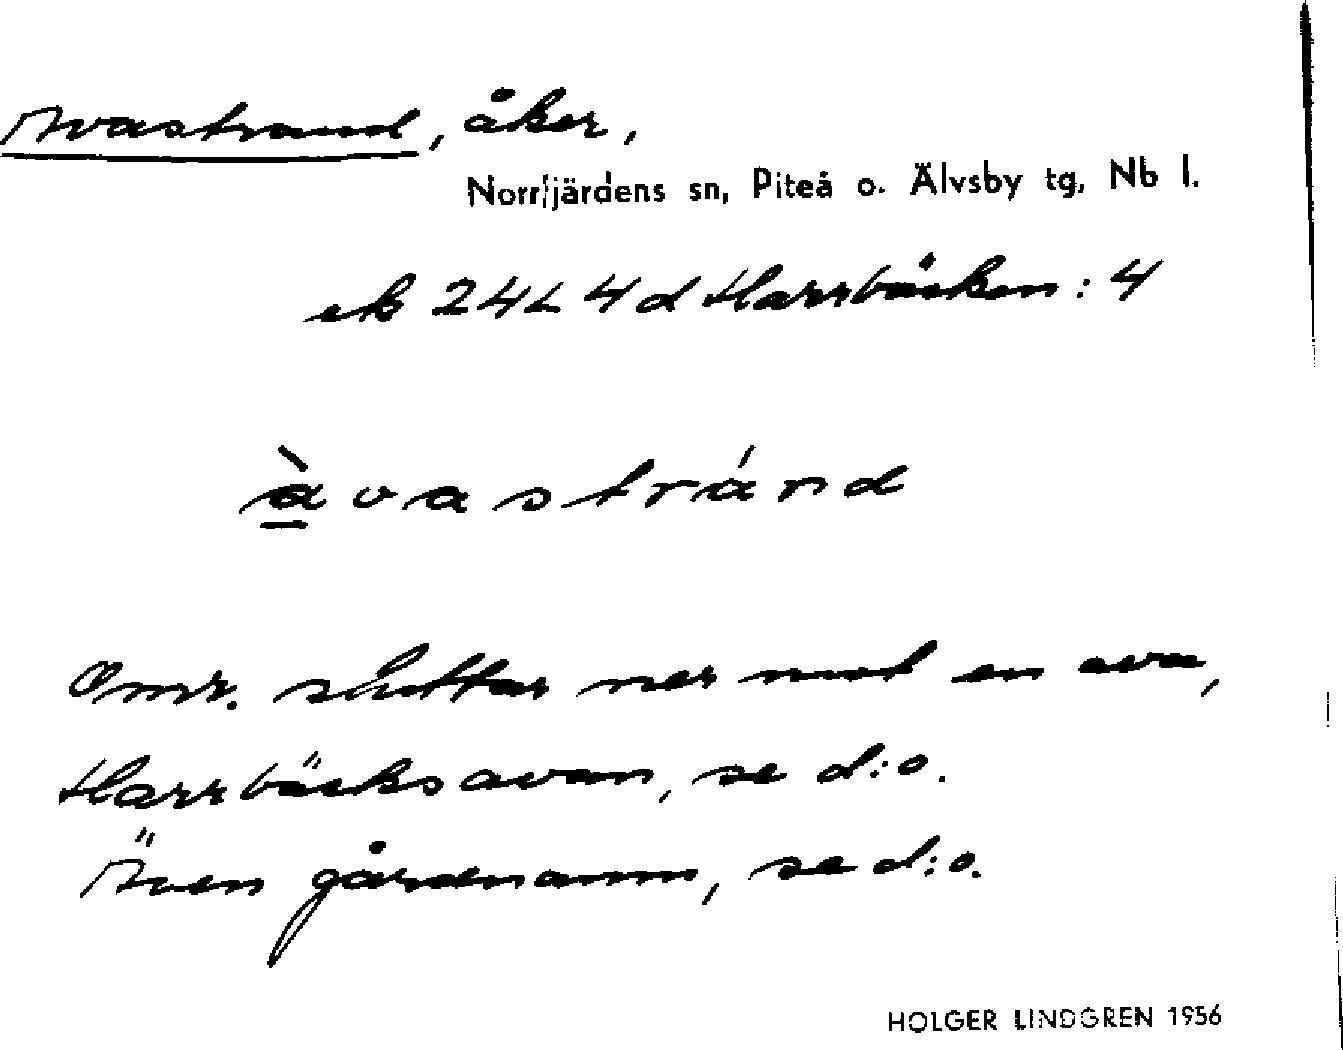 Avastrand, åker,
Norrfjärdens sn, Piteå o. Älvsby tg, Nb l.
ek 24L 4 d Harrbäcken: 4
àvastránd
Omr. sluttar ner mot en ava,
Harrbäcksavan, se d:o.
Även gårdsnamn, se d:o.
HOLGER LINDGREN 1956